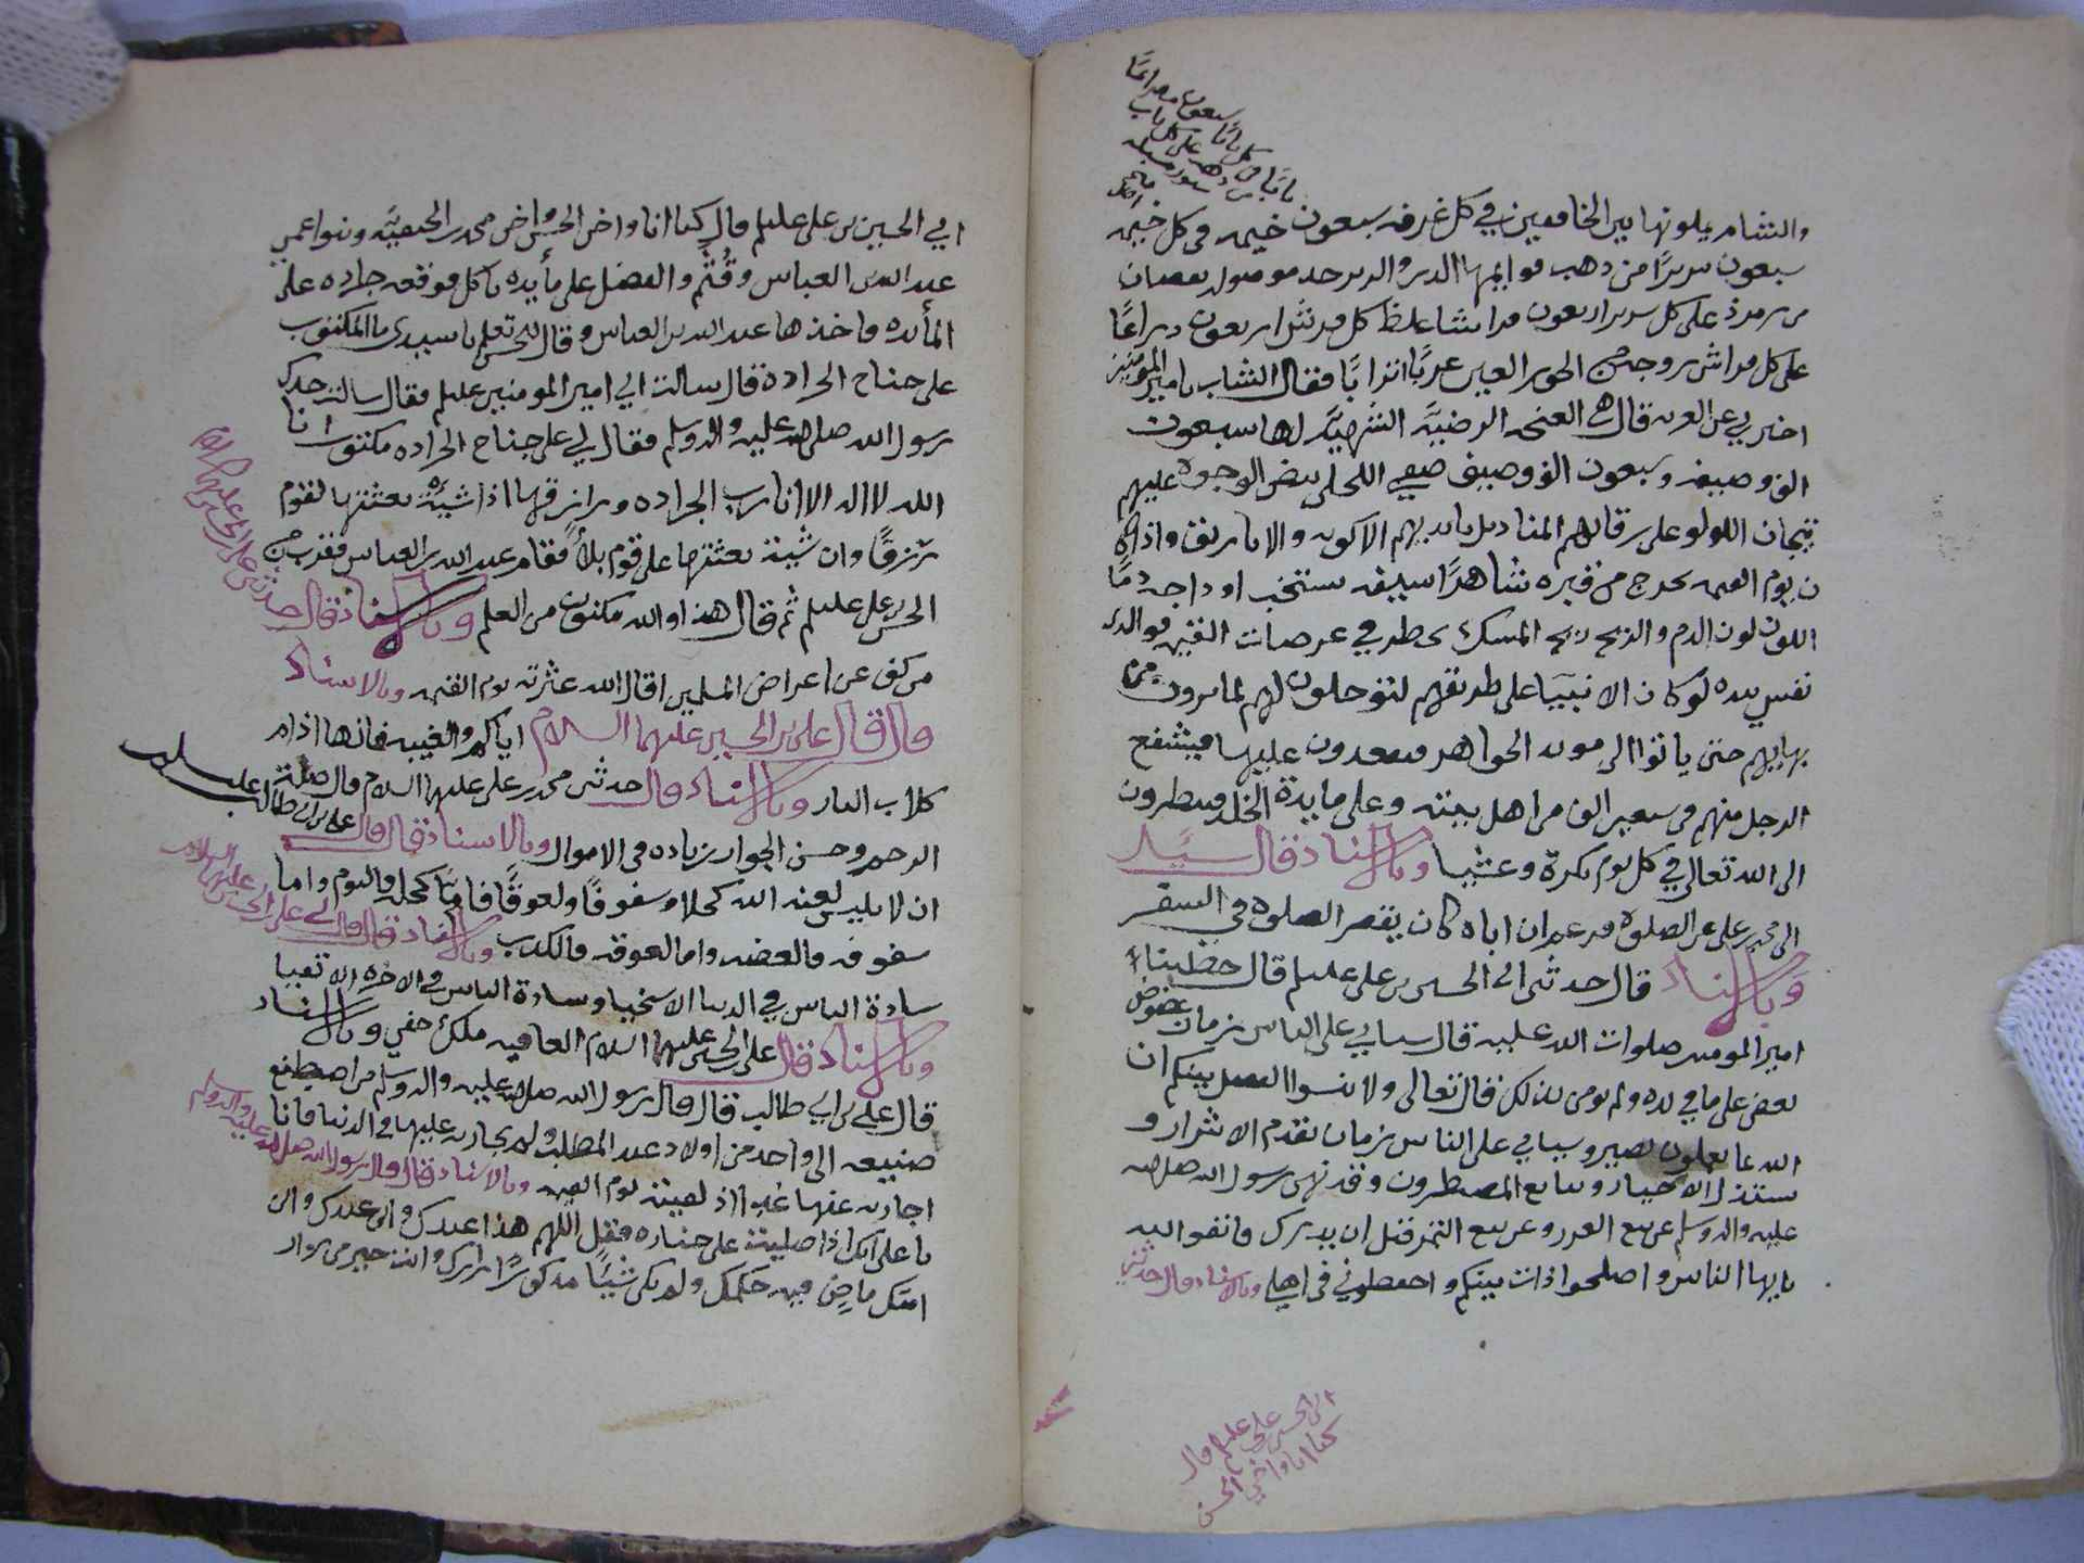 سبعون مصراعًا
والشام يلونها بين الخافقين في كل غرفه سبعون خيمه فى كل خيمه
سبعون سريرًا من ذهب قوايمها الدر والزبرجد موصوله بقضبان
من زمرذ على كل سرير اربعون فراشا غلظ كل فرش اربعون ذراعًا
على كل فراش زوجه من الحور العين عربًا اترابًا فقال الشاب يا امير المومنين
اخبرني عن العربه قال هي الغنجه الرضيَّه الشهيَّه لها سبعون
الف وصيفه وسبعون الف وصيف صفر الحلي بيض الوجوه عليهم
تيجان اللولو على رقابهم المناديل بايديهم الاكوبه والاباريق واذا كا
ن يوم القيمه يخرج من قبره شاهرًا سيفه تشخب اوداجه دمًا
اللون لون الدم والريح ريح المسك يخطر في عرصات القيمه فوالذى
نفسي بيده لو كان الانبيَا على طريقهم لترجلون لهم لما يرون من
بهايهم حتى ياتوا الى موىد الجواهر فيقعدون عليها فيشفع
الرجل منهم فى سبعين الف من اهل بيته وعلى مايدة الخلد فينظرون
الى الله تعالى في كل يوم بكرة وعشيا وبالاسناد قال سيَل
ابى محمد بن على عن الصلوة فزعم ان اباه كان يقصر الصلوة فى السفر
وبالاسناد قال حدثنى ابى الحسين بن على عليلم قال خطبناء
امير المومنين صلوات الله عليه قال سياتي على الناس زمان عضوض
يعض على ما في يده ولم يومن بذلك قال تعالى ولا تنسوا الفضل بينكم ان
الله بما تعملون بصير وسياتي على الناس زمان يقدم الاشرار و
يستذل الاخيار وبيايع المضطرون وقد نهى رسول الله صلى الله
عليه واله وسلم عن بيع الغرر وعن بيع الثمر قبل ان يدرك فاتقوا الله
يايها الناس واصلحوا ذات بينكم واحفظوني فى اهلي وبالاسناد قال حدثني
ابى الحسين بن على عليلم قال
كنا انا واخي الحسن
ابي الحسين بن على عليلم قال كنا انا واخى الحسن واخى محمد بن الحنفيَّه وبنوا عمي
عبد الله بن العباس وقُثَم والفضل على مأيده ناكل فوقعه جراده على
المأيده فاخذها عبد الله بن العباس وقال للحسن تعلم يا سيدى ما المكتوب
على جناح الجرادة قال سالت ابي امير المومنين عليلم فقال سالت جدك
رسول الله صلى الله عليه واله وسلم فقال لي على جناح الجراده مكتوب انا
الله لا اله الا انا رب الجراده ورازقها اذا شيئه بعثتها لقوم
رزقًا وان شيئة بعثتها على قوم بلاًء فقام عبد الله بن العباس فقرب من
الحسن بن على عليلم ثم قال هذا والله مكنون من العلم وبالاسناد قال حدثنى على بن الحسين عليهما السلام
من كف عن اعراض المسلمين اقال الله عثرته يوم القيمه وبالاسناد
قال قال على بن الحسين عليهما السلام اياكم والغيبه فانها ادام
كلاب النار وبالاسناد قال حدثنى محمد بن على عليهما السلام قال صلة
الرحم وحسن الجوار زياده فى الاموال وبالاسناد قال قال على بن ابى طالب عليه السلام
ان لابليس لعنه الله كحلا وسفوفًا ولعوقًا فامَّا كحله فالنوم واما
سفوفه فالغضب واما لعوقه فالكذب وبالاسناد قال قال لي على بن الحسين عليهما السلام
سادة الناس في الدنيا الاسخيا وسادة الناس في الاخره الاتقيا
وبالاسناد قال على بن الحسين عليهما السلام العافيه ملك خفي وبالاسناد
قال علي بن ابي طالب قال قال رسول الله صلى الله عليه واله وسلم من اصطنع
صنيعه الى واحد من اولاد عبد المطلب ولم يجازيه عليها فى الدنيا فانا
اجازيه عنها غدا اذ لقيته يوم القيمه وبالاسناد قال قال رسول الله صلى الله عليه واله وسلم
يا على انك اذا صليت على جنازه فقل اللهم هذا عبدك وابن عبدك وابن
امتك ماضٍ فيه حكمك ولم يكن شيئًا مذكورًا زارك وانت خير مزوار